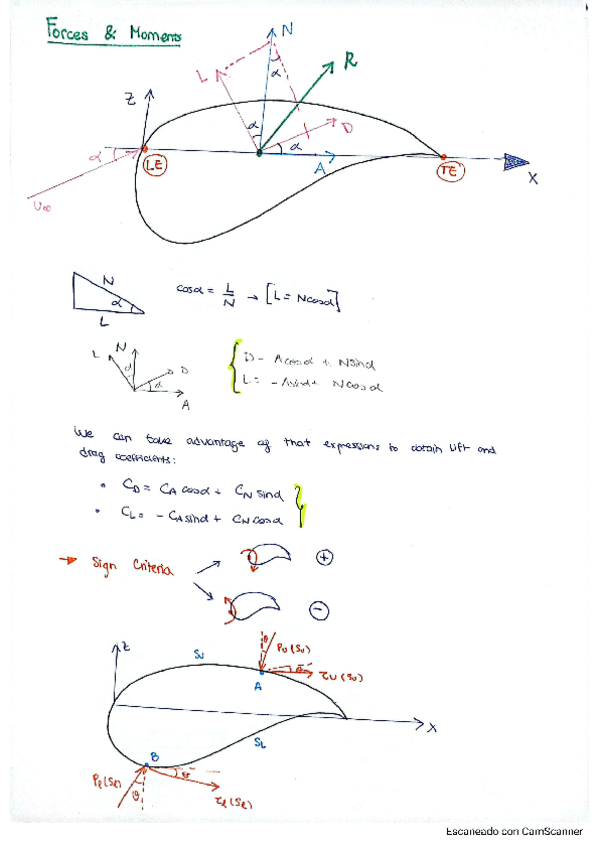 Forces & Moments
N
R
L
α
Z
α
D
α
α
LE
A
TE
X
U∞
N
α
L
cosα = L/N → [L = Ncosα]
L N D
α α
A
D = Acosα + Nsinα
L = -Asinα + Ncosα
We can take advantage of that expressions to obtain lift and
drag coefficients:
• CD = CA cosα + CN sinα
• CL = - CAsinα + CNcosα
→ Sign Criteria
+
-
Z
Su
θ
Pu(Su)
θ
τu(Su)
A
X
SL
B
Pl(Sl)
θ
θ
τl(Sl)
Escaneado con CamScanner